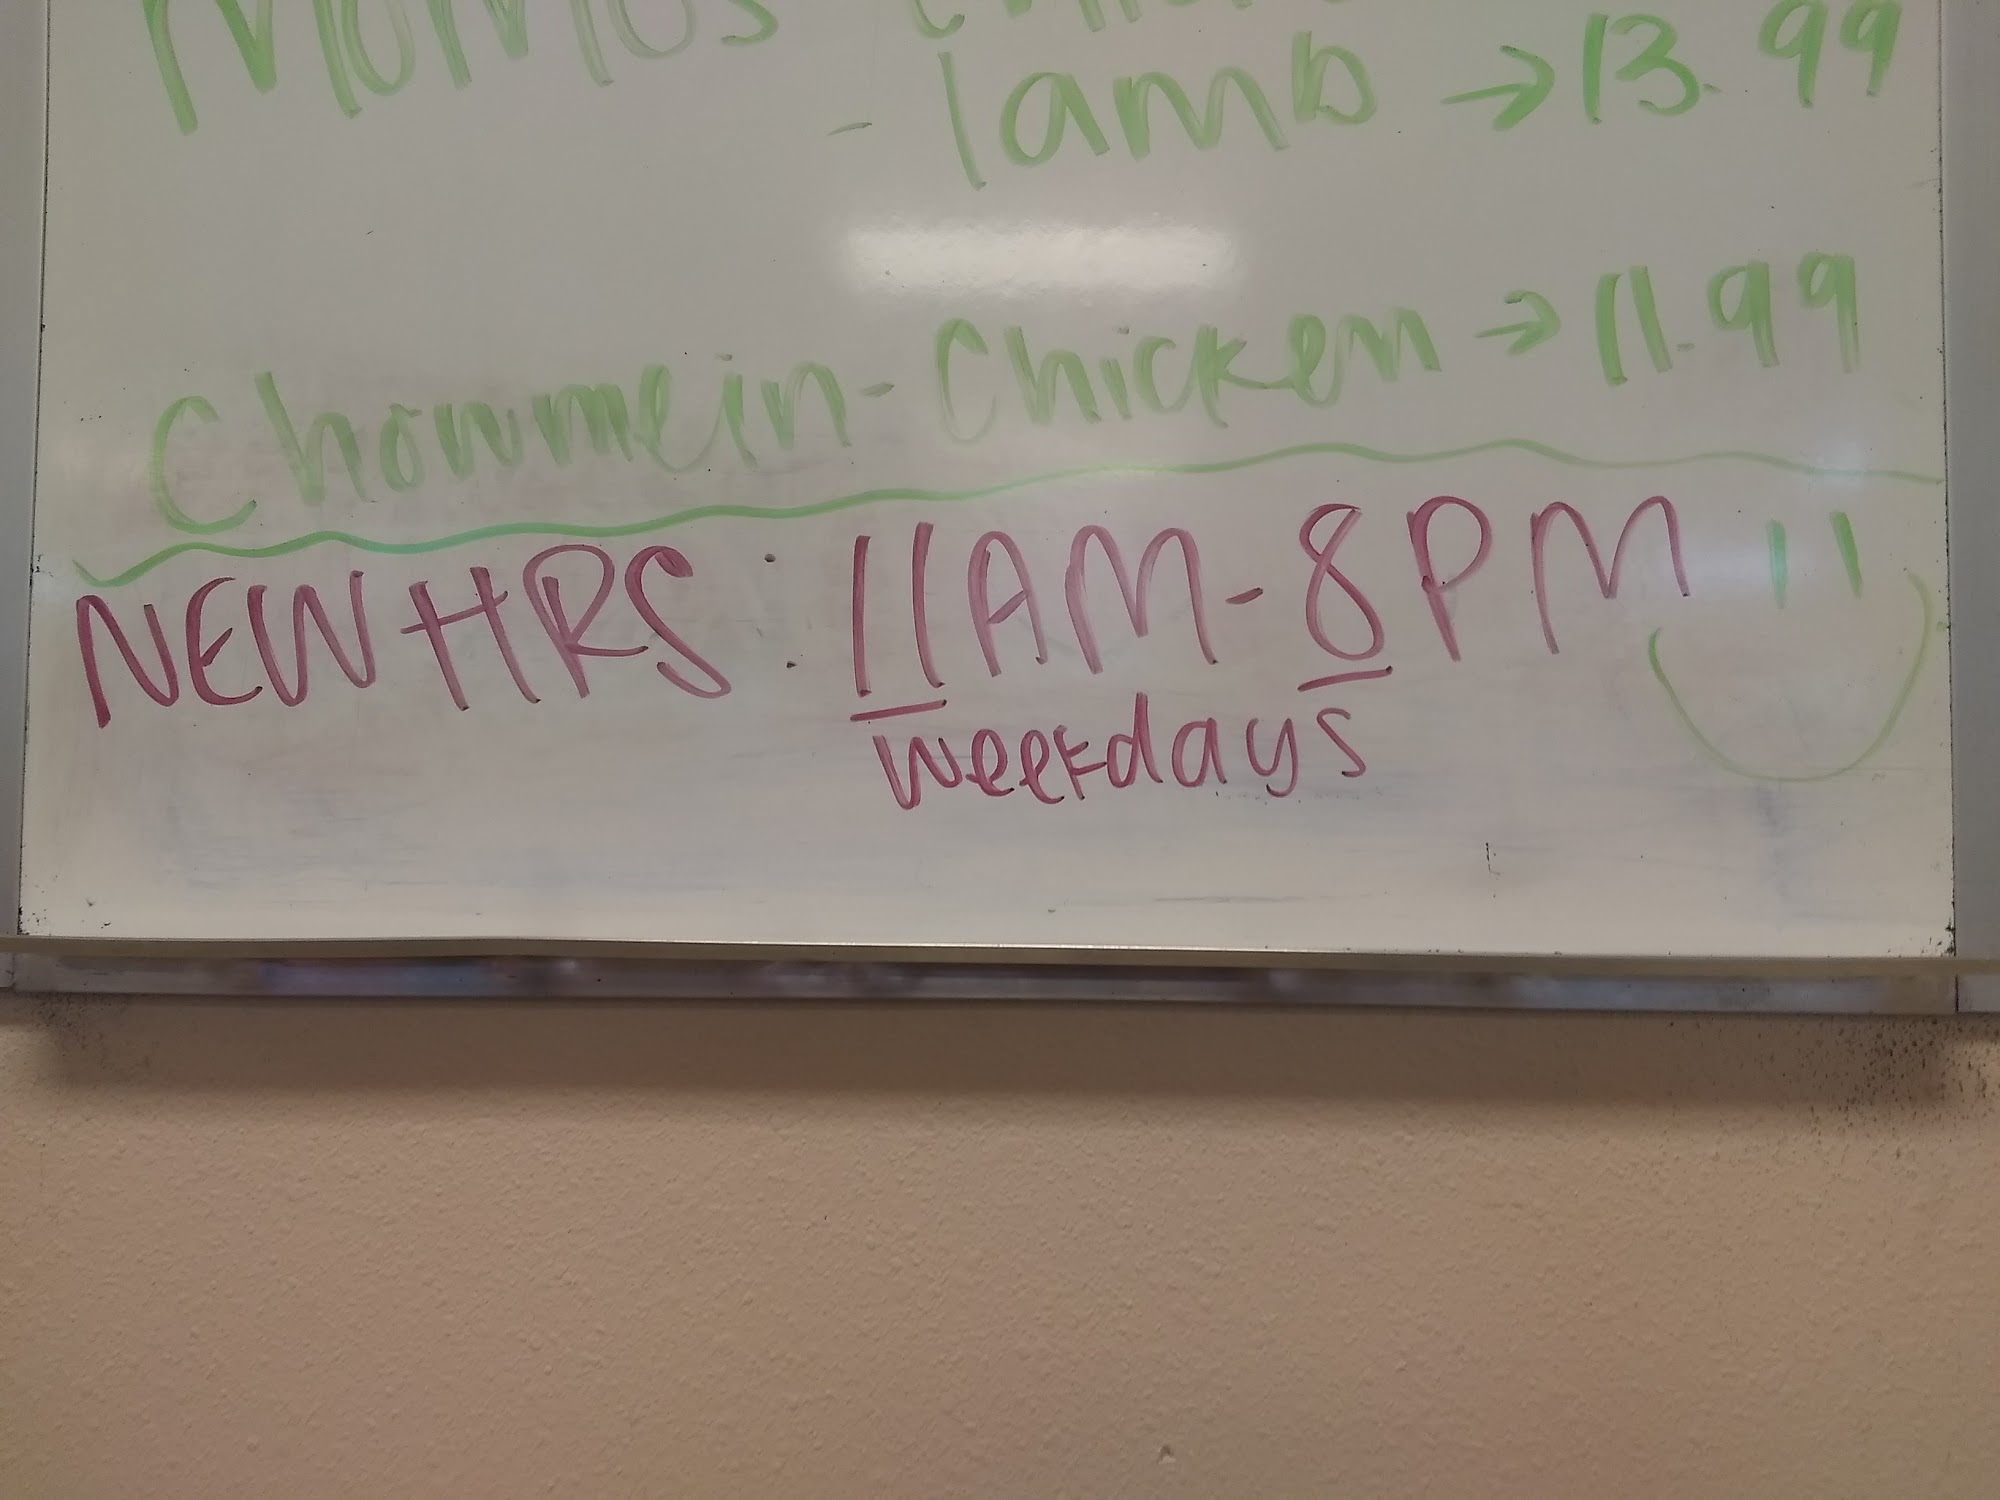 MoMos
- lamb → 13.99
Chowmein - Chicken → 11.99
NEW HRS: 11AM - 8PM
weekdays